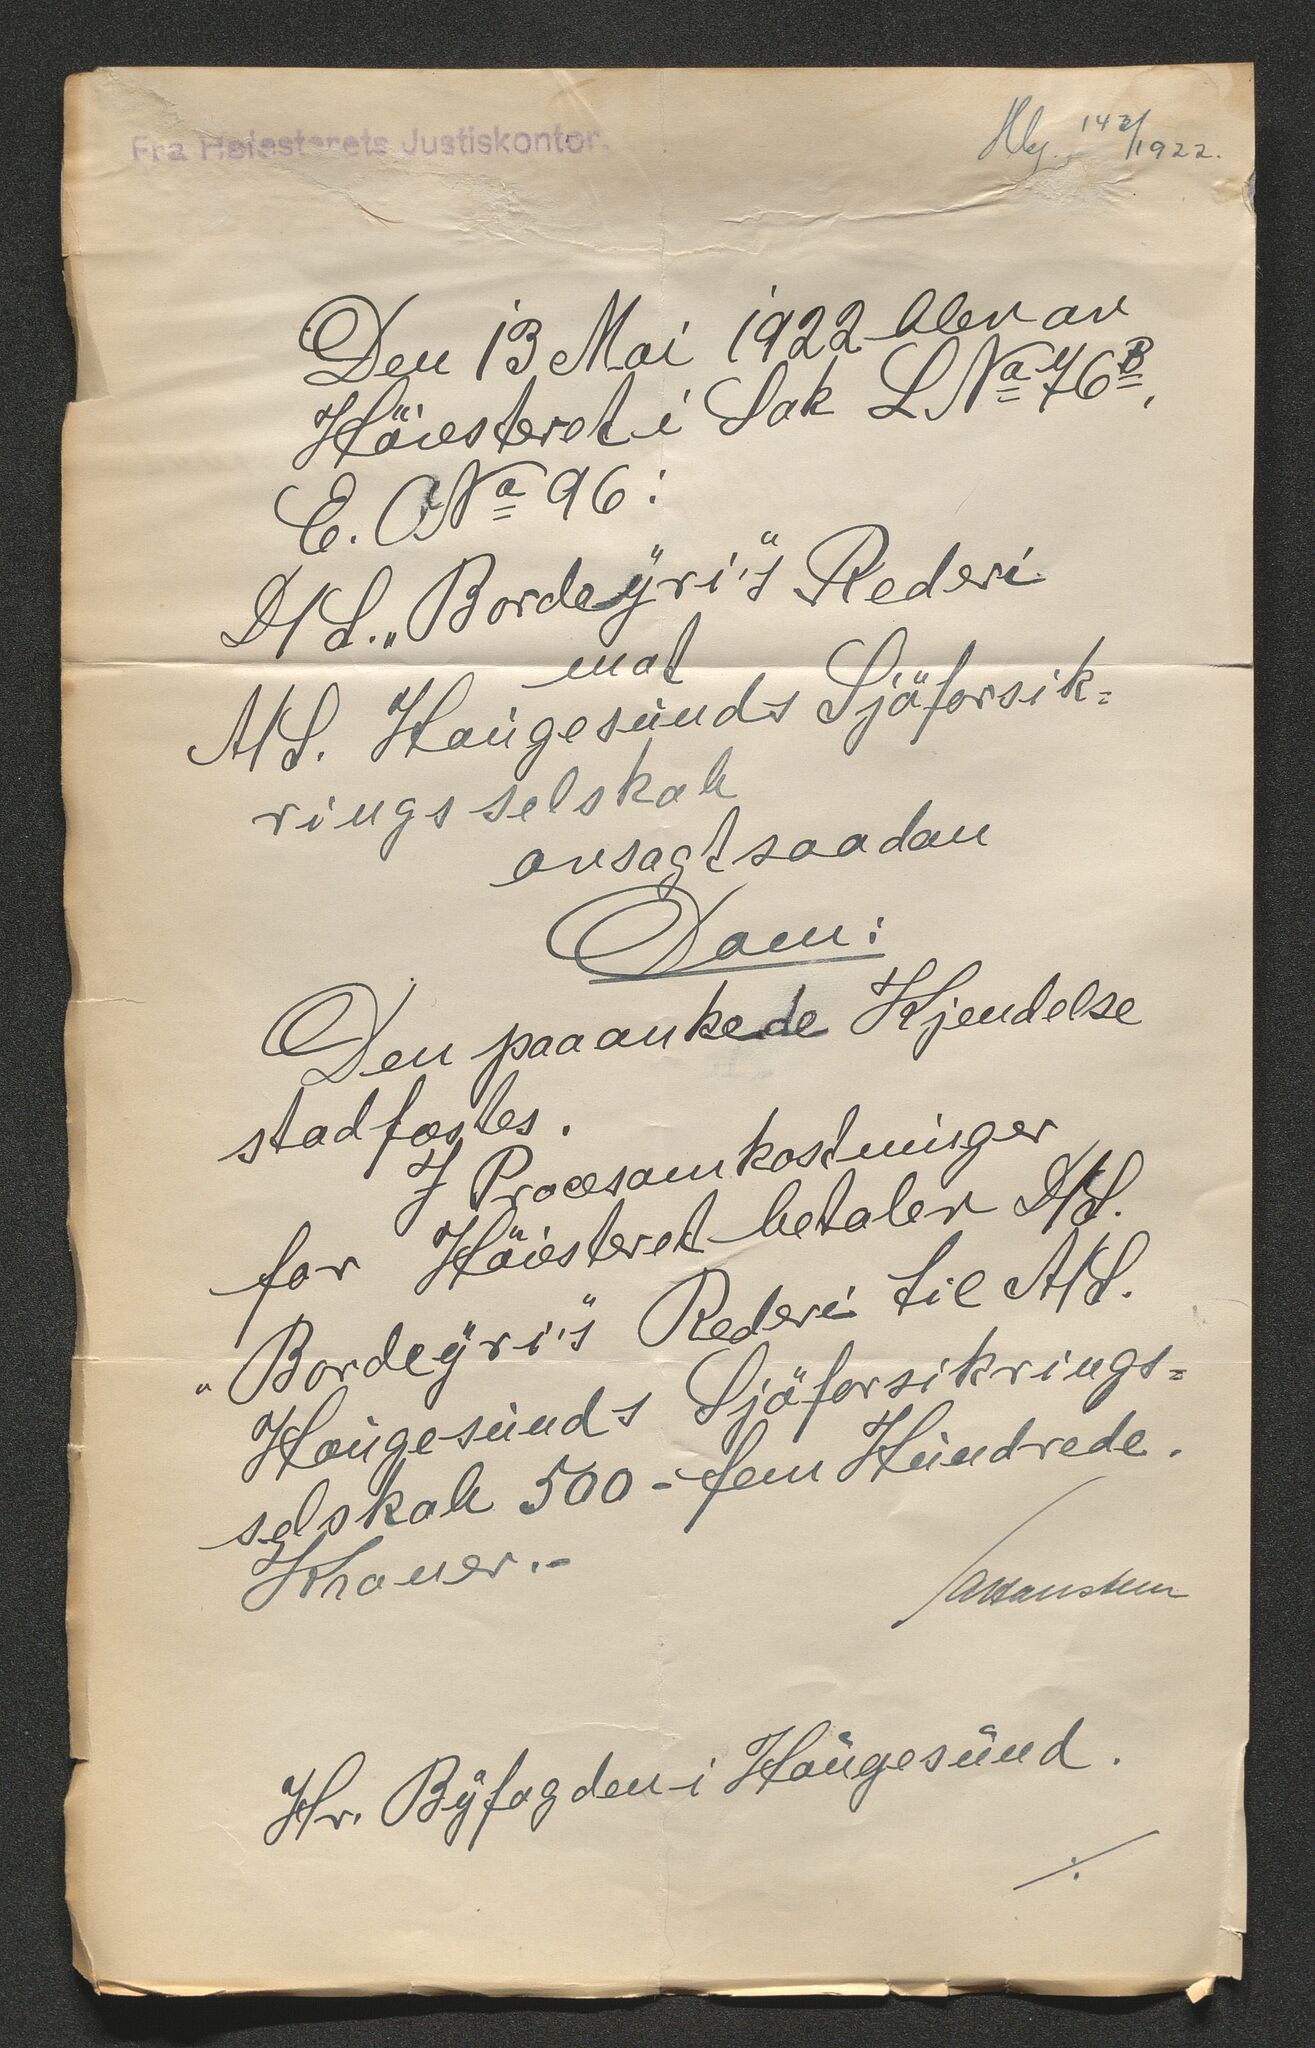 Fra Høiesterets Justiskontor.
143/1922.
Den 13 Mai 1922 blev av
Höiesteret i Sak L Nº 76B,
E. Nº 96:
D/S. „Bordeÿri"s Rederi
mot
A/S. Haugesunds Sjöforsik=
ringsselskab
avsagt saadan
Dom:
Den paaankede Kjendelse
stadfæstes.
I Procesomkostninger
for Höiesteret betaler D/S.
„Bordeÿri"s Rederi til A/S.
Haugesunds Sjöforsikrings=
selskab 500 - fem Hundrede.
Kroner.-
Hr. Bÿfogden i Haugesund.